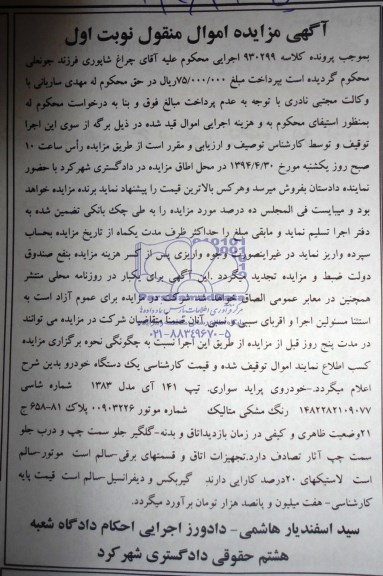 آگهی مزایده اموال منقول نوبت اول
بموجب پرونده کلاسه ۹۳۰۲۹۹ اجرایی محکوم علیه آقای چراغ شاپوری فرزند جونعلی
محکوم گردیده است بپرداخت مبلغ ۷۵/۰۰۰/۰۰۰ریال در حق محکوم له مهدی ساربانی با
وکالت مجتبی نادری با توجه به عدم پرداخت مبالغ فوق و بنا به درخواست محکوم له
بمنظور استیفای محکوم به و هزینه اجرایی اموال قید شده در ذیل برگه از سوی این اجرا
توقیف و توسط کارشناس توصیف و ارزیابی و مقرر است از طریق مزایده رأس ساعت ۱۰
صبح روز یکشنبه مورخ ۱۳۹۴/۴/۳۰ در محل اطاق مزایده در دادگستری شهرکرد با حضور
نماینده دادستان بفروش میرسد وهرکس بالاترین قیمت را پیشنهاد نماید برنده مزایده خواهد
بود و میبایست فی المجلس ده درصد مورد مزایده را به طی چک بانکی تضمین شده به
دفتر اجرا تسلیم نماید و مابقی مبلغ را حداکثر ظرف مدت یکماه از تاریخ مزایده بحساب
سپرده واریز نماید در غیراینصورت وجوه واریزی پس از کسر هزینه مزایده بنفع صندوق
دولت ضبط و مزایده تجدید میگردد .این آگهی برای یکبار در روزنامه محلی منتشر
همچنین در معابر عمومی الصاق خواهد شد شرکت در مزایده برای عموم آزاد است به
استثنا مسئولین اجرا و اقربای سببی و نسبی آنان ضمنا متقاضیان شرکت در مزایده می توانند
در مدت پنج روز قبل از مزایده از طریق این اجرا نسبت به چگونگی نحوه برگزاری مزایده
کسب اطلاع نمایند اموال توقیف شده و قیمت کارشناسی یک دستگاه خودرو بدین شرح
اعلام میگردد.-خودروی پراید سواری. تیپ ۱۴۱ آی مدل ۱۳۸۳ شماره شاسی
۱۴۸۲۲۸۲۱۰۹۰۷۷ رنگ مشکی متالیک شماره موتور ۰۰۹۰۳۲۲۶ پلاک ۸۱-۶۵۸ ج
۲۱وضعیت ظاهری و کیفی در زمان بازدیداتاق و بدنه-گلگیر جلو سمت چپ و درب جلو
سمت چپ آثار تصادف دارد.تجهیزات اتاق و قسمتهای برقی-سالم است موتور-سالم
است لاستیکهای ۲۰درصد کارایی دارند گیربکس و دیفرانسیل-سالم است قیمت پایه
کارشناسی- هفت میلیون و پانصد هزار تومان برآورد میگردد.
سید اسفندیار هاشمی- دادورز اجرایی احکام دادگاه شعبه
هشتم حقوقی دادگستری شهرکرد
۰۲۱-۸۸۳۴۹۶۷۰-۵